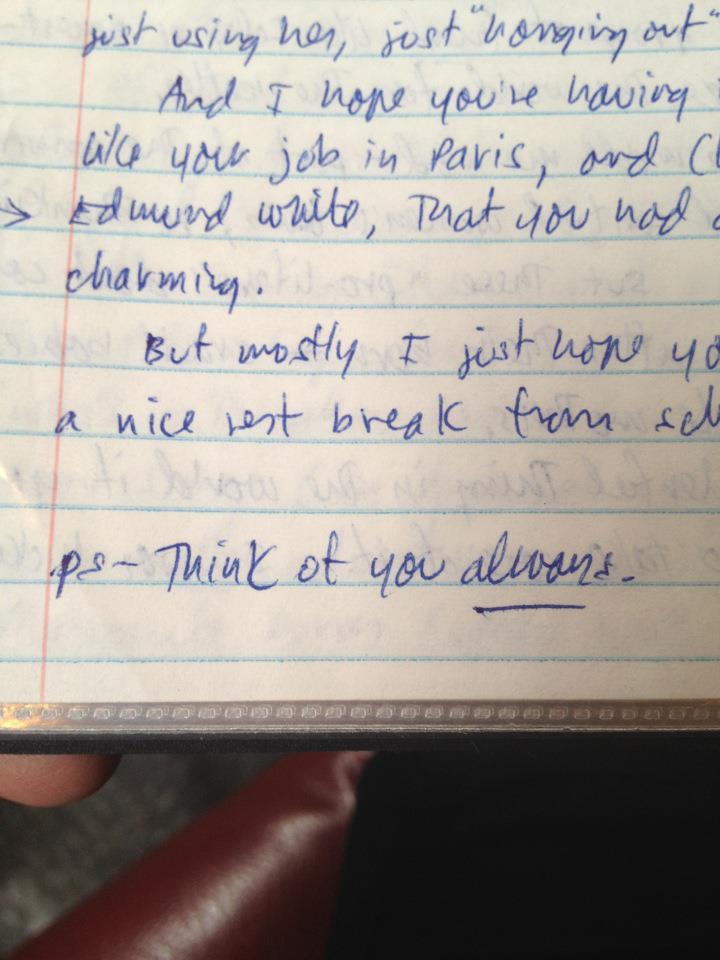 just using her, just "hanging out"
And I hope you're having
like your job in Paris, and (
→ Edmund White, That you had
charming.
But mostly I just hope yo
a nice rest break from sch
ps – Think of you always.